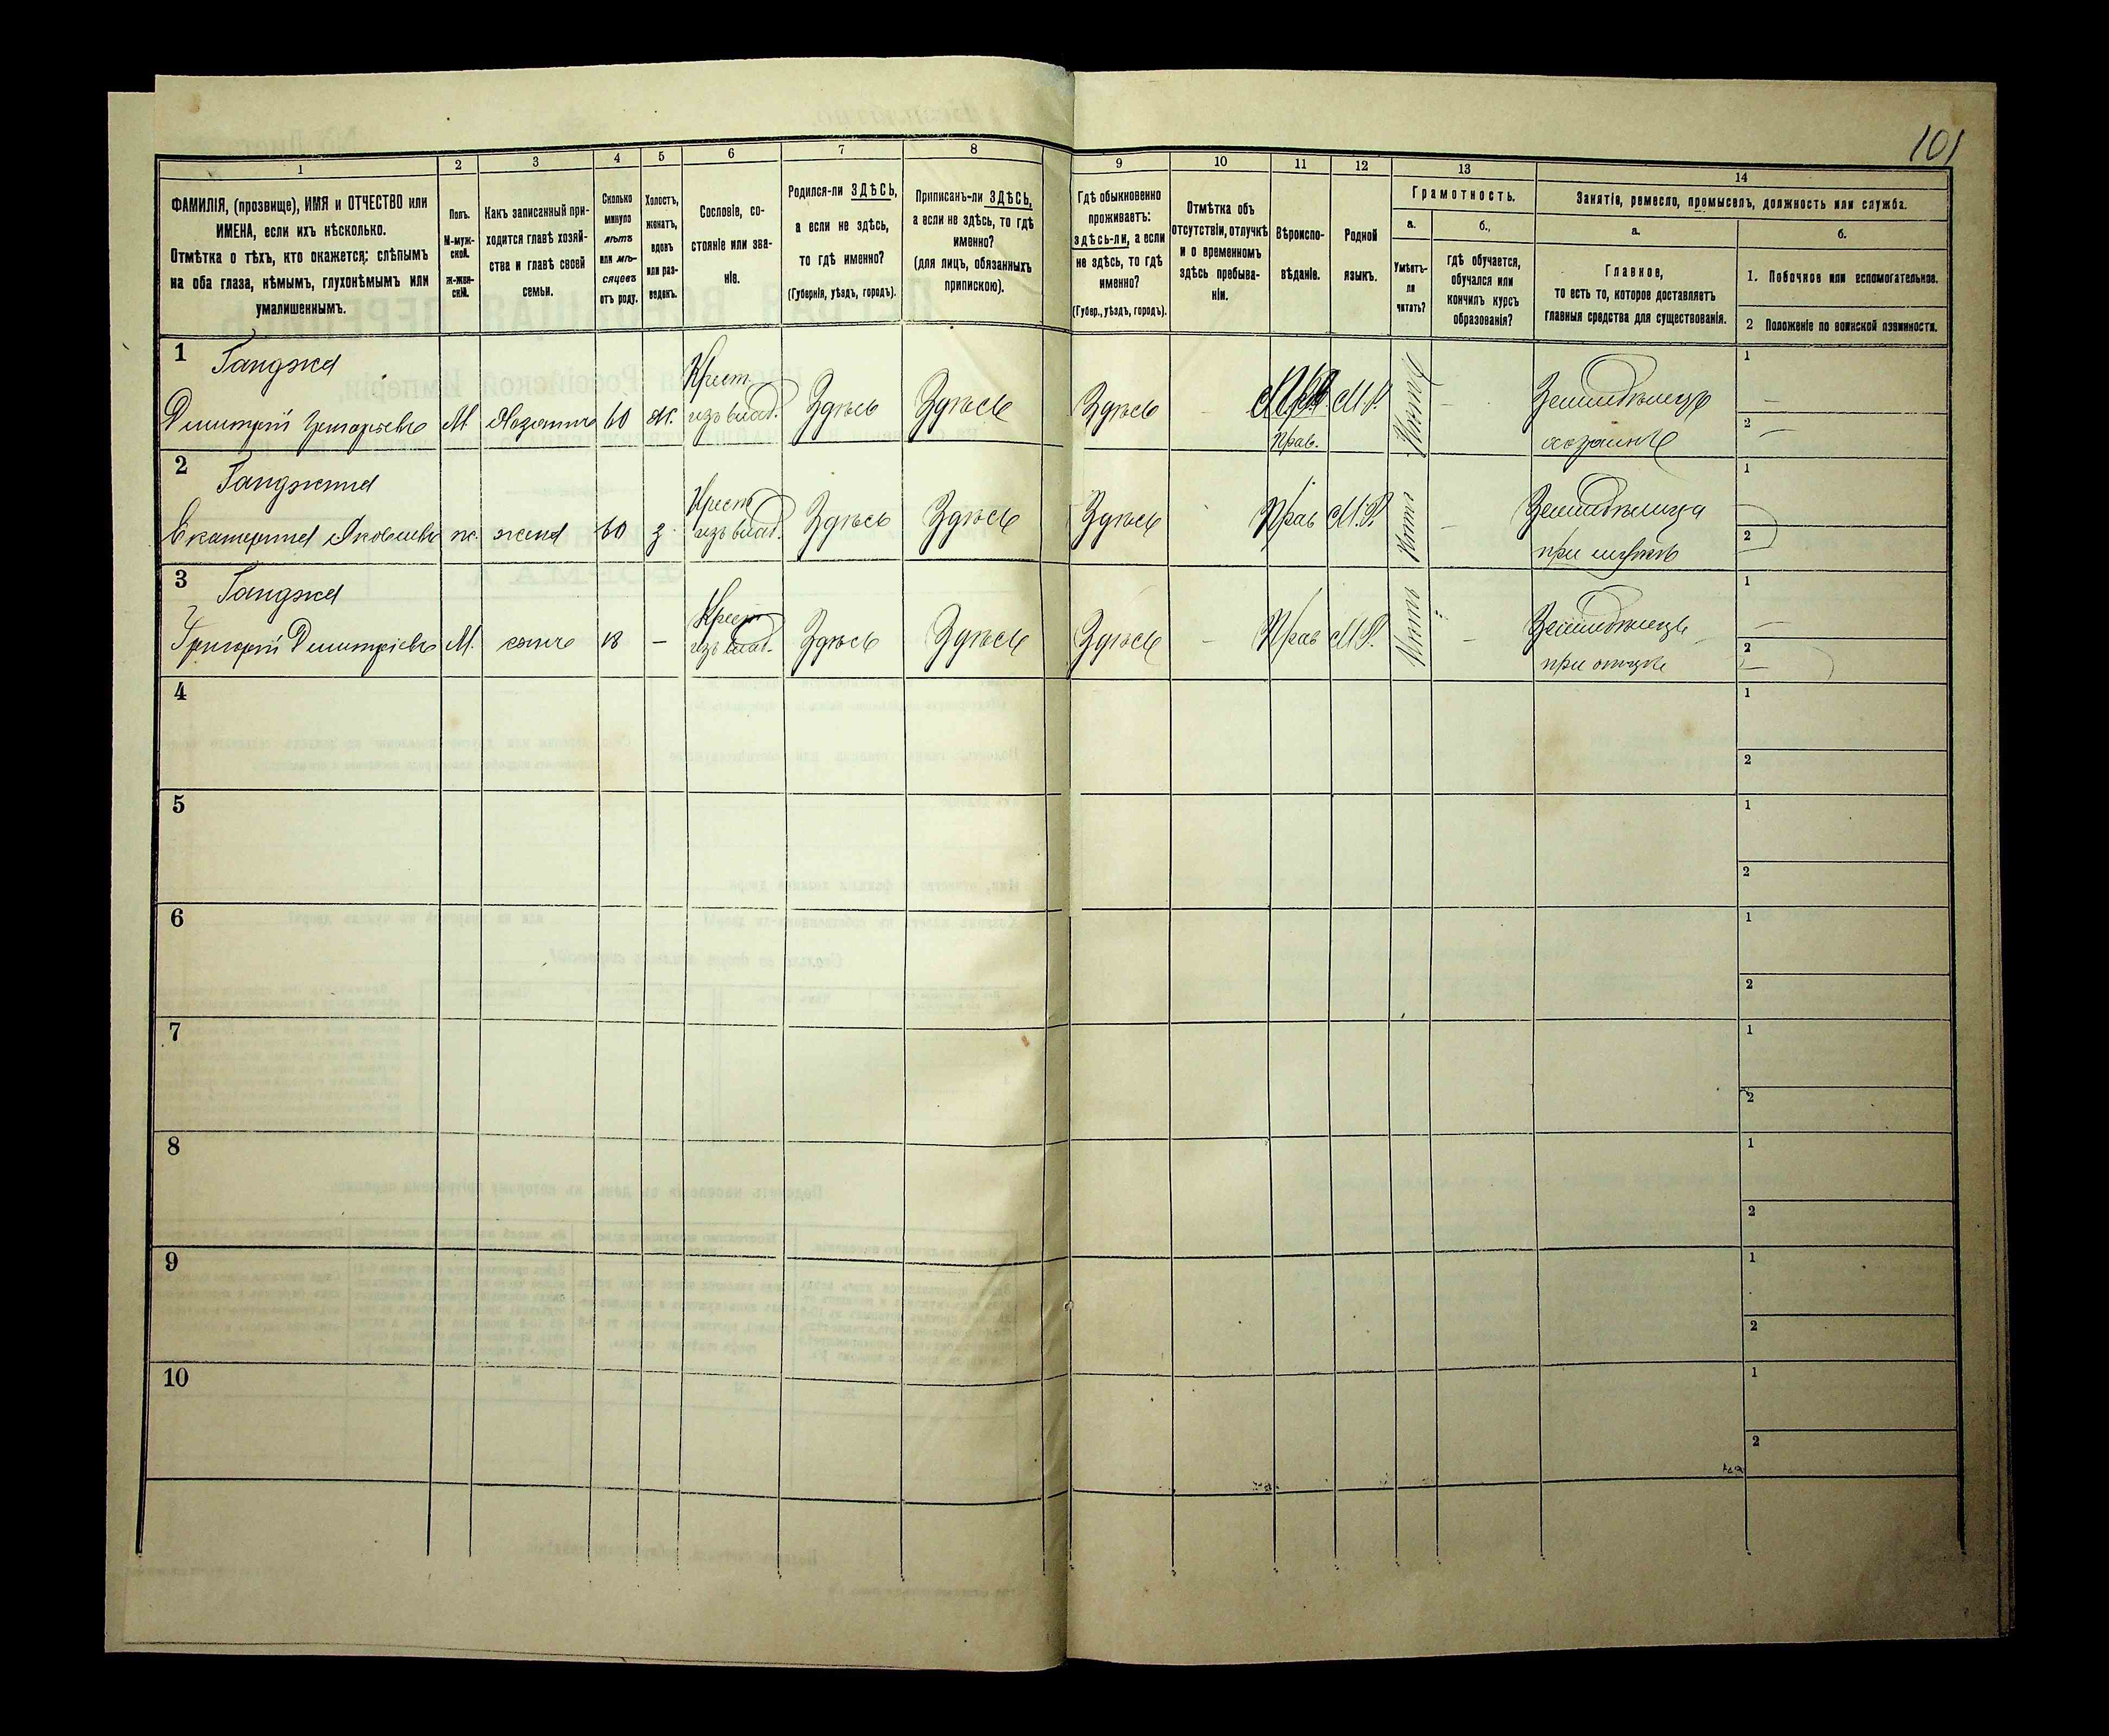 101
1
2
3
4
5
6
7
8
9
10
11
12
13
14
ФАМИЛІЯ, (прозвище), ИМЯ и ОТЧЕСТВО или
ИМЕНА, если ихъ нѣсколько.
Отмѣтка о тѣхъ, кто окажется: слѣпымъ
на оба глаза, нѣмымъ, глухонѣмымъ или
умалишеннымъ.
Полъ.
М-муж-
ской.
ж-жен-
скій.
Какъ записанный при-
ходится главѣ хозяй-
ства и главѣ своей
семьи.
Сколько
минуло
лѣтъ
или мѣ-
сяцевъ
отъ роду.
Холостъ,
женатъ,
вдовъ
или раз-
веденъ.
Сословіе, со-
стояніе или зва-
ніе.
Родился-ли ЗДѢСЬ,
а если не здѣсь,
то гдѣ именно?
(Губернія, уѣздъ, городъ).
Приписанъ-ли ЗДѢСЬ,
а если не здѣсь, то гдѣ
именно?
(для лицъ, обязанныхъ
припискою).
Гдѣ обыкновенно
проживаетъ:
здѣсь-ли, а если
не здѣсь, то гдѣ
именно?
(Губер., уѣздъ, городъ).
Отмѣтка объ
отсутствіи, отлучкѣ
и о временномъ
здѣсь пребыва-
ніи.
Вѣроиспо-
вѣданіе.
Родной
языкъ.
Грамотность.
а.
Умѣетъ-
ли
читать?
б.,
гдѣ обучается,
обучался или
кончилъ курсъ
образованія?
Занятіе, ремесло, промыселъ, должность или служба.
а.
Главное,
то есть то, которое доставляетъ
главныя средства для существованія.
б.
1. Побочное или вспомогательное.
2 Положеніе по воинской повинности.
1 Ганджа
Димитрій Григорьевъ М Хозяинъ 60 ж. Крест. изъ влад. Здѣсь Здѣсь Здѣсь - Прав. М.Р. Нѣтъ - Земледѣлецъ
хозяинъ
1 -
2 -
2 Ганджина
Екатерина Яковлева ж. жена 60 з. Крест изъ влад. Здѣсь Здѣсь Здѣсь Прав М.Р. Нѣтъ - Земледѣлица
при мужѣ
1
2
3 Ганджа
Григорій Димитріевъ М. сынъ 18 - Крест изъ влад. Здѣсь Здѣсь Здѣсь - Прав М.Р. Нѣтъ - Земледѣлецъ
при отцѣ
1 -
2 -
4
1
2
5
1
2
6
1
2
7
1
2
8
1
2
9
1
2
10
1
2